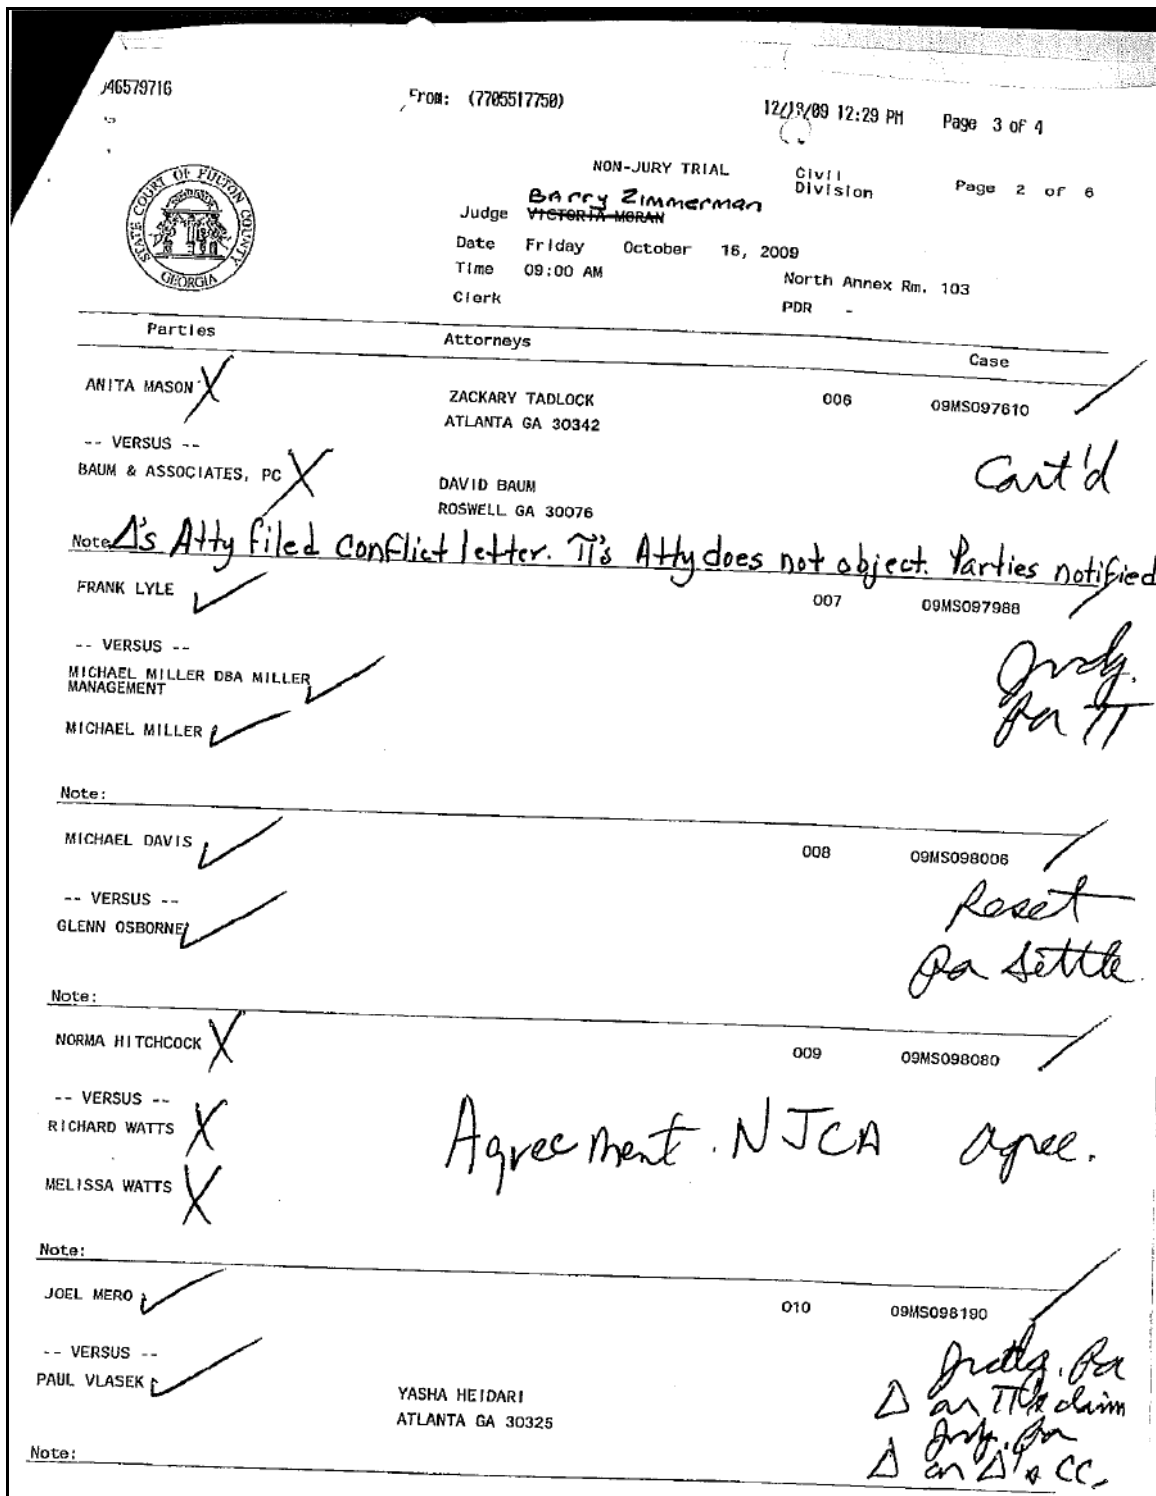 046579716 From: (7705517750) 12/18/09 12:29 PM Page 3 of 4
STATE COURT OF FULTON COUNTY
GEORGIA
NON-JURY TRIAL Civil Division Page 2 of 6
Barry Zimmerman
Judge VICTORIA MORAN
Date Friday October 16, 2009
Time 09:00 AM North Annex Rm. 103
Clerk PDR -
Parties Attorneys Case
ANITA MASON X ZACKARY TADLOCK 006 09MS097610
ATLANTA GA 30342
-- VERSUS --
BAUM & ASSOCIATES, PC X DAVID BAUM Cont'd
ROSWELL GA 30076
Note Δ's Atty filed conflict letter. π's Atty does not object. Parties notified
FRANK LYLE ✓ 007 09MS097988
-- VERSUS --
MICHAEL MILLER DBA MILLER ✓ Judg.
MANAGEMENT for π
MICHAEL MILLER ✓
Note:
MICHAEL DAVIS ✓ 008 09MS098006
-- VERSUS -- Reset
GLENN OSBORNE ✓ for settle.
Note:
NORMA HITCHCOCK X 009 09MS098080
-- VERSUS --
RICHARD WATTS X Agreement. NJCA agree.
MELISSA WATTS X
Note:
JOEL MERO ✓ 010 09MS098190
-- VERSUS -- Judg. for
PAUL VLASEK ✓ YASHA HEIDARI Δ on π's claim
ATLANTA GA 30325 Judg. for
Note: Δ on Δ's CC.